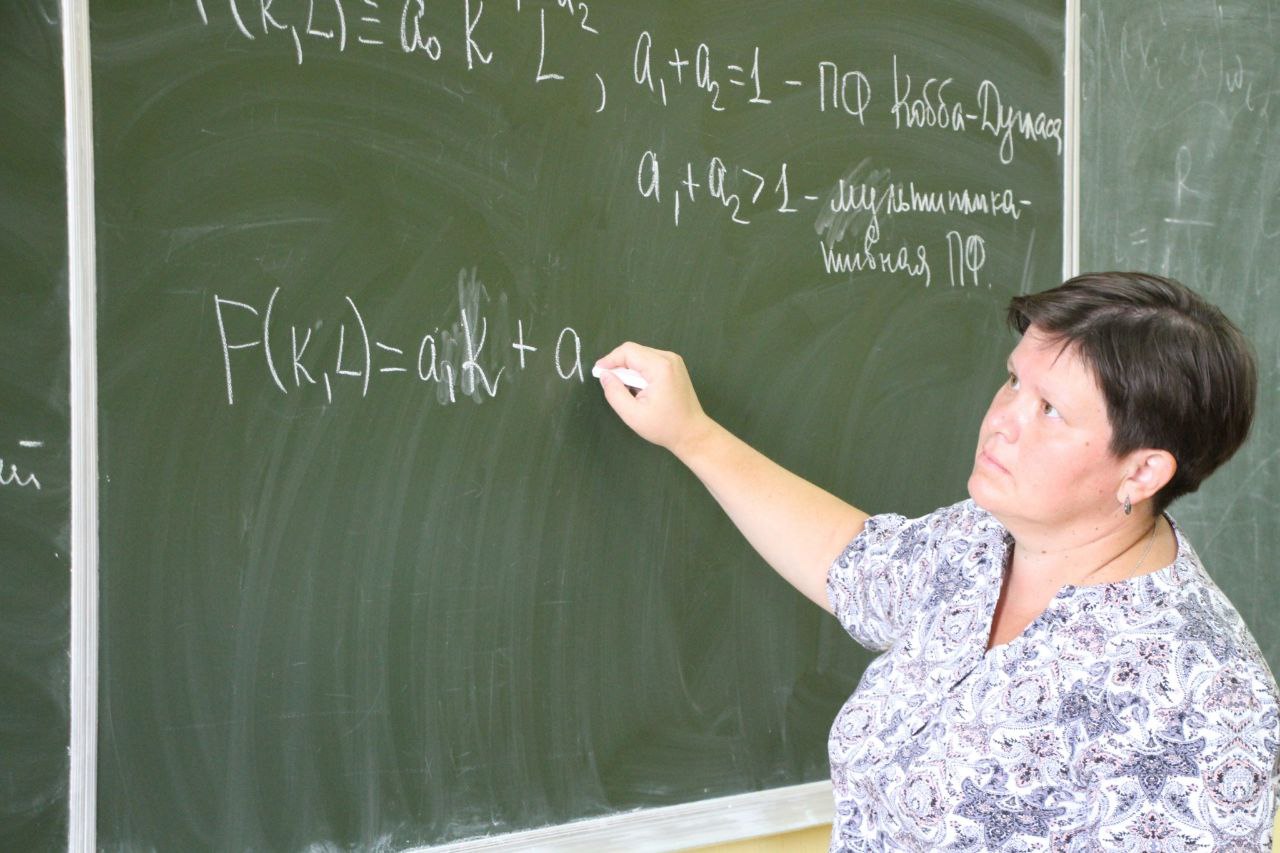 F(K,L) = a₀ K L^a₂, a₁+a₂=1 – ПФ Кобба-Дугласа
a₁+a₂>1 – мультиплика-
тивная ПФ.
F(K,L)=a₁K + a